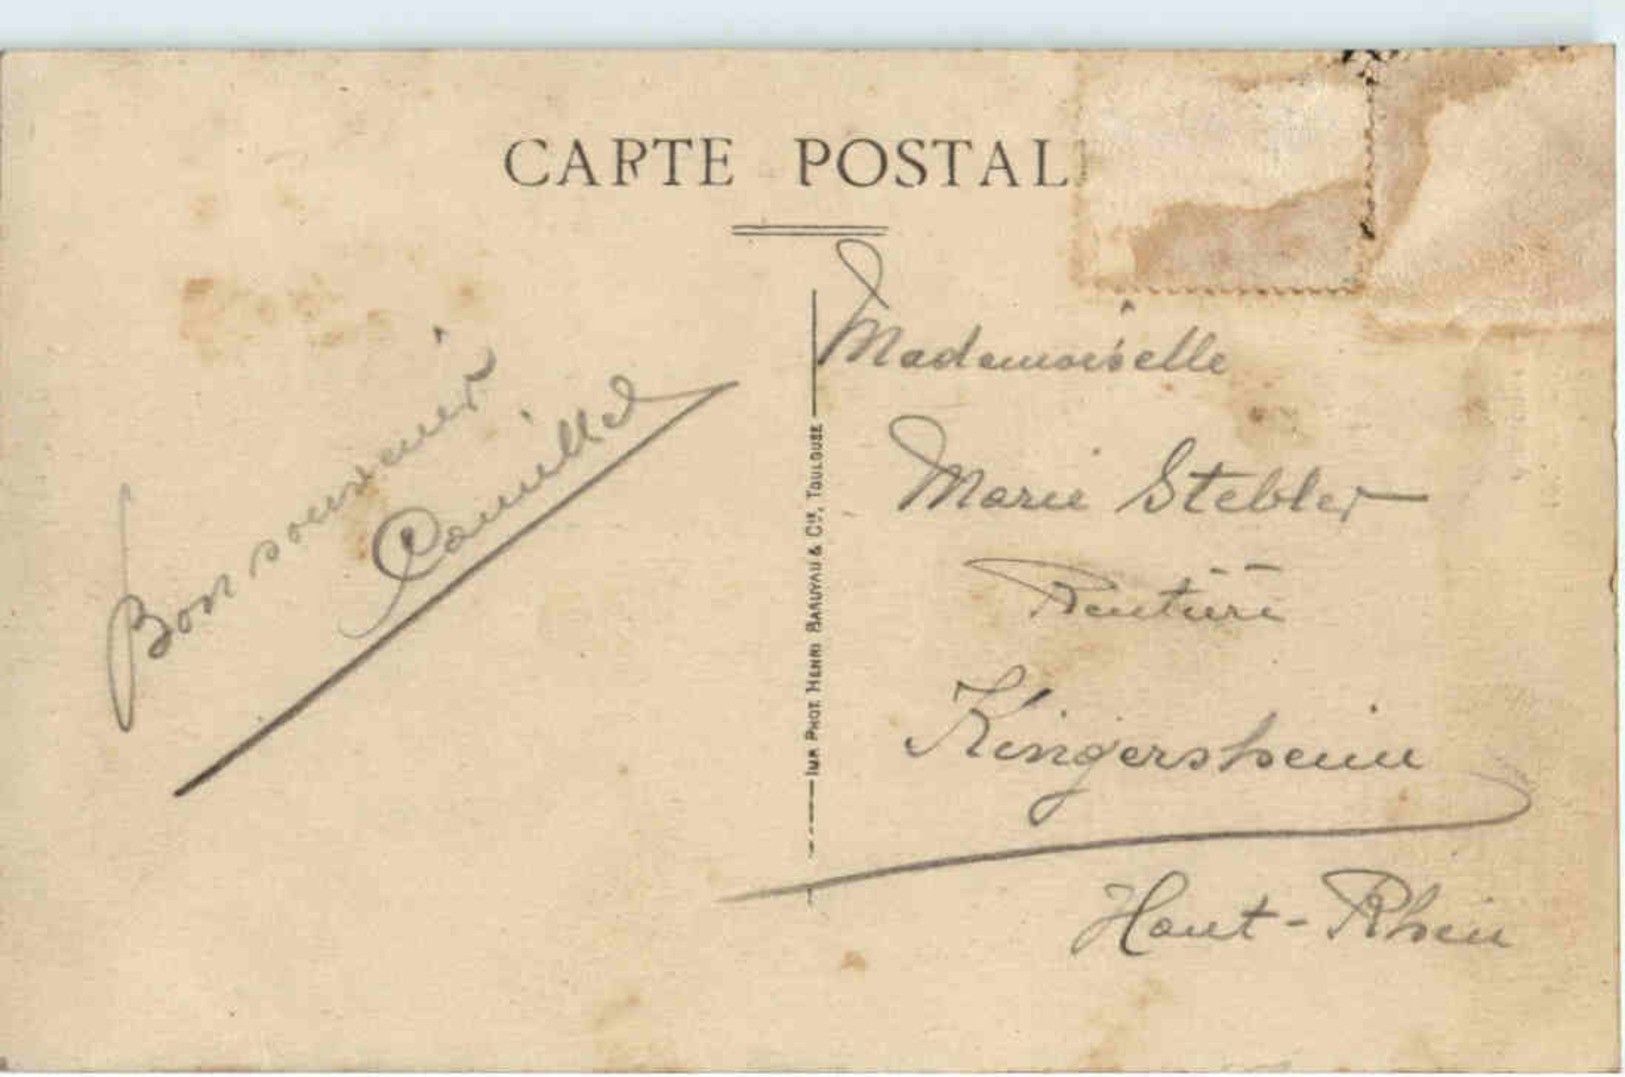 CARTE POSTAL
Bon souvenir
Camille
IMP. PHOT. HENRI BASUYAU & Cie, TOULOUSE
Mademoiselle
Marie Stebler
Kingersheim
Haut-Rhin